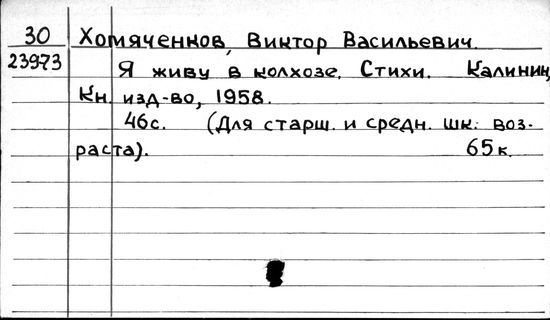 30 Хомяченков, Виктор Васильевич.
23973 Я живу в колхозе. Стихи. Калинин,
Кн. изд-во, 1958.
46с. (Для старш. и средн. шк. воз-
раста). 65к.